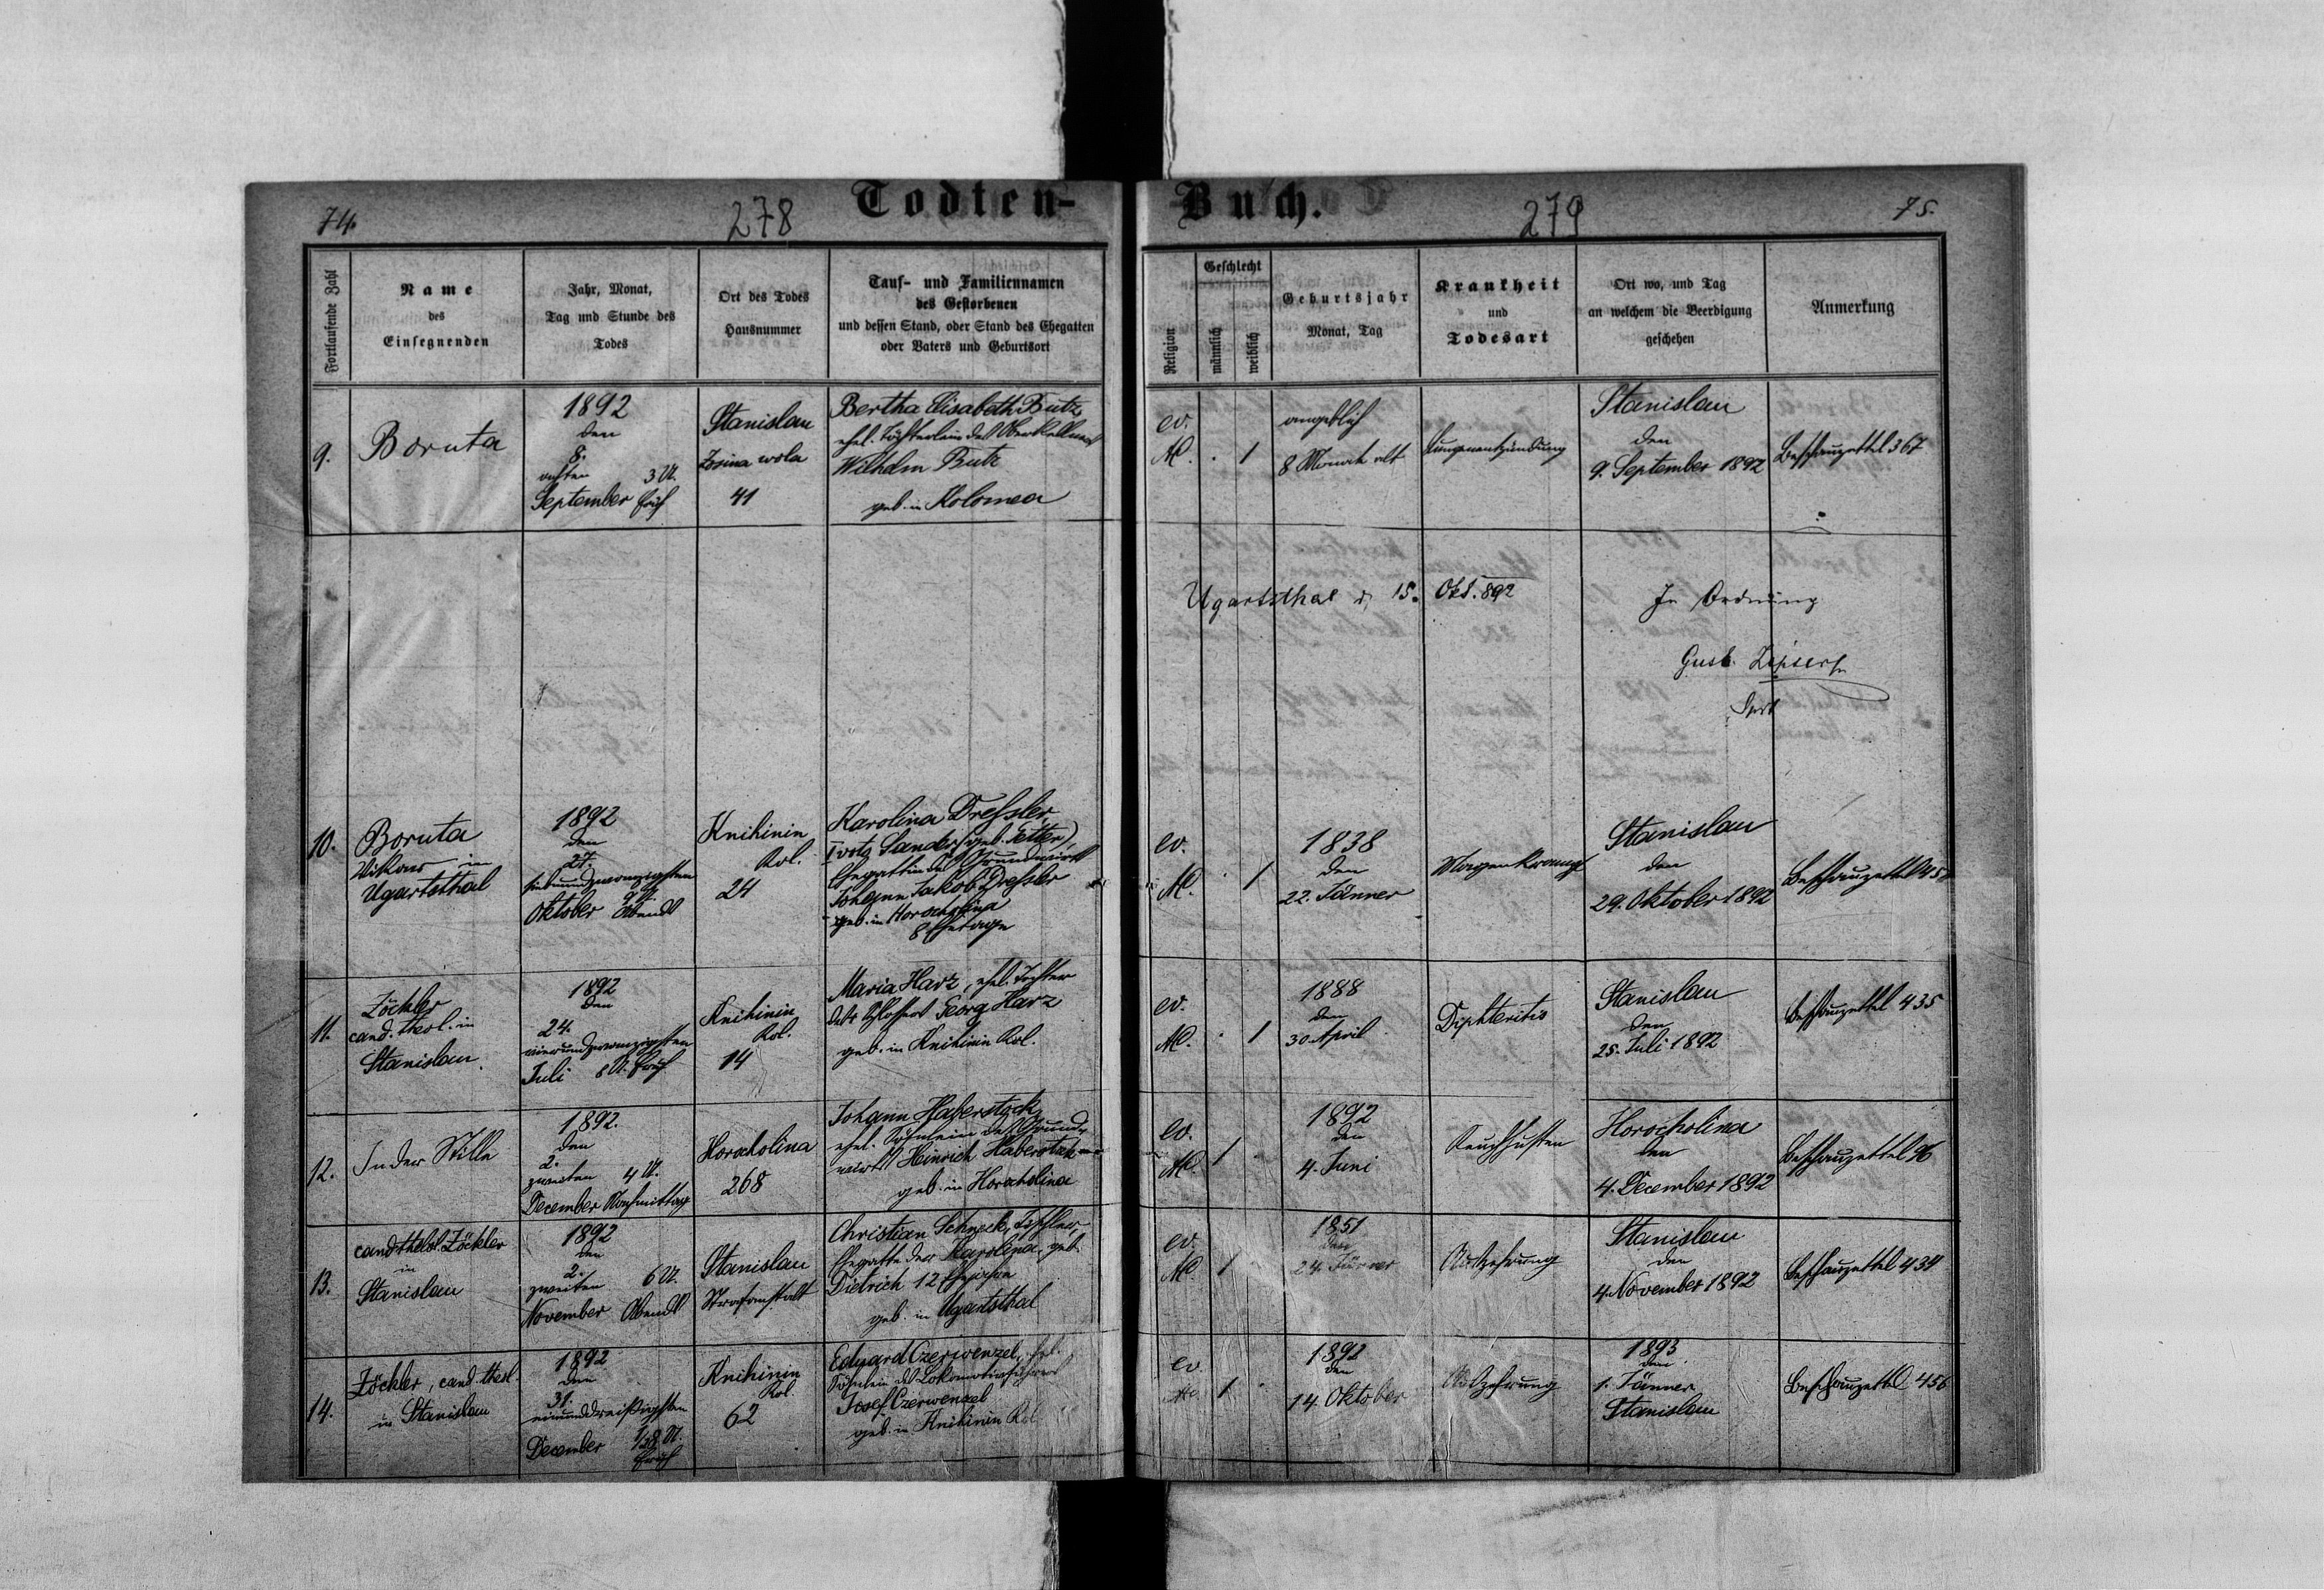 Todten-
Buch.
74.
278
279
75.
Fortlaufende Zahl
Name
des
Einsegnenden
Jahr, Monat,
Tag und Stunde des
Todes
Ort des Todes
Hausnummer
Tauf- und Familiennamen
des Gestorbenen
und dessen Stand, oder Stand des Ehegatten
oder Vaters und Geburtsort
Religion
Geschlecht
männlich
weiblich
Geburtsjahr
Monat, Tag
Krankheit
und
Todesart
Ort wo, und Tag
an welchem die Beerdigung
geschehen
Anmerkung
9.
Boruta
1892
den
8.
achten 3 U.
September früh
Stanislau
Zosina wola
41
Bertha Elisabeth Butz
ehel. Töchterlein des Oberkellners
Wilhelm Butz
geb. in Kolomea
ev.
A.C. . 1
angeblich
8 Monate alt
Lungenentzündung
Stanislau
den
9. September 1892
Beschauzettel 367
Ugartsthal d. 15. Okt. 892
In Ordnung
Gust. Zipser
10.
Boruta
Vikar in
Ugartsthal
1892
den
27.
siebenundzwanzigsten
9 U.
Oktober Abends
Knihinin
Kol.
24
Karolina Dressler,
I voto Sander (geb. Jetter),
Ehegattin des Grundwirts
Johann Jakob Dressler
geb. in Horocholina
8 Ehetage
ev.
A.C. . 1
1838
den
22. Jänner
Magenkrampf
Stanislau
den
29. Oktober 1892
Beschauzettel
11.
Zöckler
cand. theol. in
Stanislau.
1892
den
24.
vierundzwanzigsten
Juli 8 U. früh
Knihinin
Kol.
14
Maria Harz, ehel. Tochter
des Schlossers Georg Harz
geb. in Knihinin Kol.
ev.
A.C. . 1
1888
den
30. April
Diphteritis
Stanislau
den
25. Juli 1892
Beschauzettel 435
12.
In der Stille
1892.
den
2.
zweiten 4 U.
December Nachmittag
Horocholina
268
Johann Haberstock
ehel. Söhnlein des Grund-
wirts Heinrich Haberstock
geb. in Horocholina
ev.
A.C. 1 .
1892
den
4. Juni
Keuchhusten
Horocholina
den
4. December 1892
Beschauzettel 96
13.
cand. theol. Zöckler
in
Stanislau
1892
den
2.
zweiten 6 U.
November Abends
Stanislau
Strafanstalt
Christian Schneck, Tischler,
Ehegatte der Karolina, geb.
Dietrich 12 Ehejahre
geb. in Ugartsthal
ev.
A.C. 1
1851
den
24. Jänner
Auszehrung
Stanislau
den
4. November 1892
Beschauzettel 434
14.
Zöckler, cand. theol.
in Stanislau
1892
den
31.
einunddreißigsten
December 1/28 U.
früh
Knihinin
Kol.
62
Eduard Czerwenzel, ehel.
Söhnlein des Lokomotivführers
Josef Czerwenzel
geb. in Knihinin Kol.
ev.
A.C. 1 .
1892
den
14. Oktober
Abzehrung
1893
den
1. Jänner
Stanislau
Beschauzettel 456